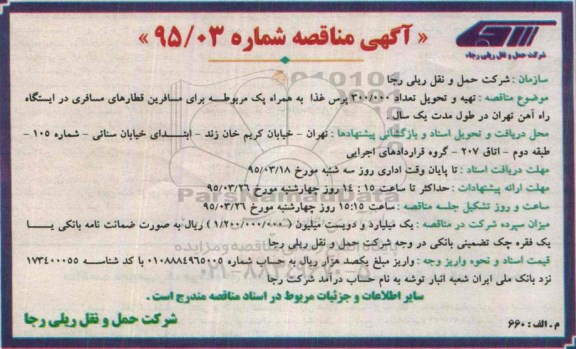 « آگهی مناقصه شماره ۹۵/۰۳ »
شرکت حمل و نقل ریلی رجاء
سازمان : شرکت حمل و نقل ریلی رجا
موضوع مناقصه : تهیه و تحویل تعداد ۳۰۰/۰۰۰ پرس غذا به همراه پک مربوطه برای مسافرین قطارهای مسافری در ایستگاه
راه آهن تهران در طول مدت یک سال
محل دریافت و تحویل اسناد و بازگشائی پیشنهادها : تهران - خیابان کریم خان زند - ابتدای خیابان سنائی - شماره ۱۰۵ -
طبقه دوم - اتاق ۲۰۷ - گروه قراردادهای اجرایی
مهلت دریافت اسناد : تا پایان وقت اداری روز سه شنبه مورخ ۹۵/۰۳/۱۸
مهلت ارائه پیشنهادات : حداکثر تا ساعت ۱۵ : ۱۴ روز چهارشنبه مورخ ۹۵/۰۳/۲۶
ساعت و روز تشکیل جلسه مناقصه : ساعت ۱۵:۱۵ روز چهارشنبه مورخ ۹۵/۰۳/۲۶
میزان سپرده شرکت در مناقصه : یک میلیارد و دویست میلیون (۱/۲۰۰/۰۰۰/۰۰۰) ریال به صورت ضمانت نامه بانکی یا
یک فقره چک تضمینی بانکی در وجه شرکت حمل و نقل ریلی رجا
قیمت اسناد و نحوه واریز وجه : واریز مبلغ یکصد هزار ریال به حساب شماره ۰۱۰۸۸۸۴۹۶۵۰۰۵ با کد شناسه ۱۷۳۴۰۰۰۵۵
نزد بانک ملی ایران شعبه انبار توشه به نام حساب درآمد شرکت رجا
سایر اطلاعات و جزئیات مربوط در اسناد مناقصه مندرج است .
شرکت حمل و نقل ریلی رجا
م . الف : ۶۶۰